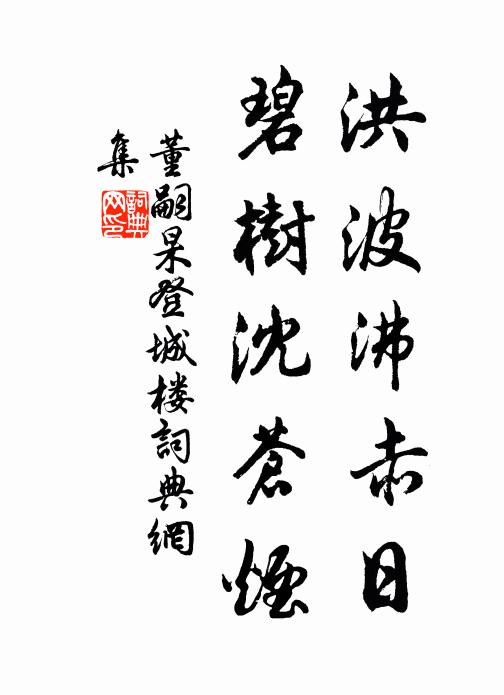 洪波沸赤日
碧樹沈蒼煙
董嗣杲登城楼詞典網
集
詞典网印